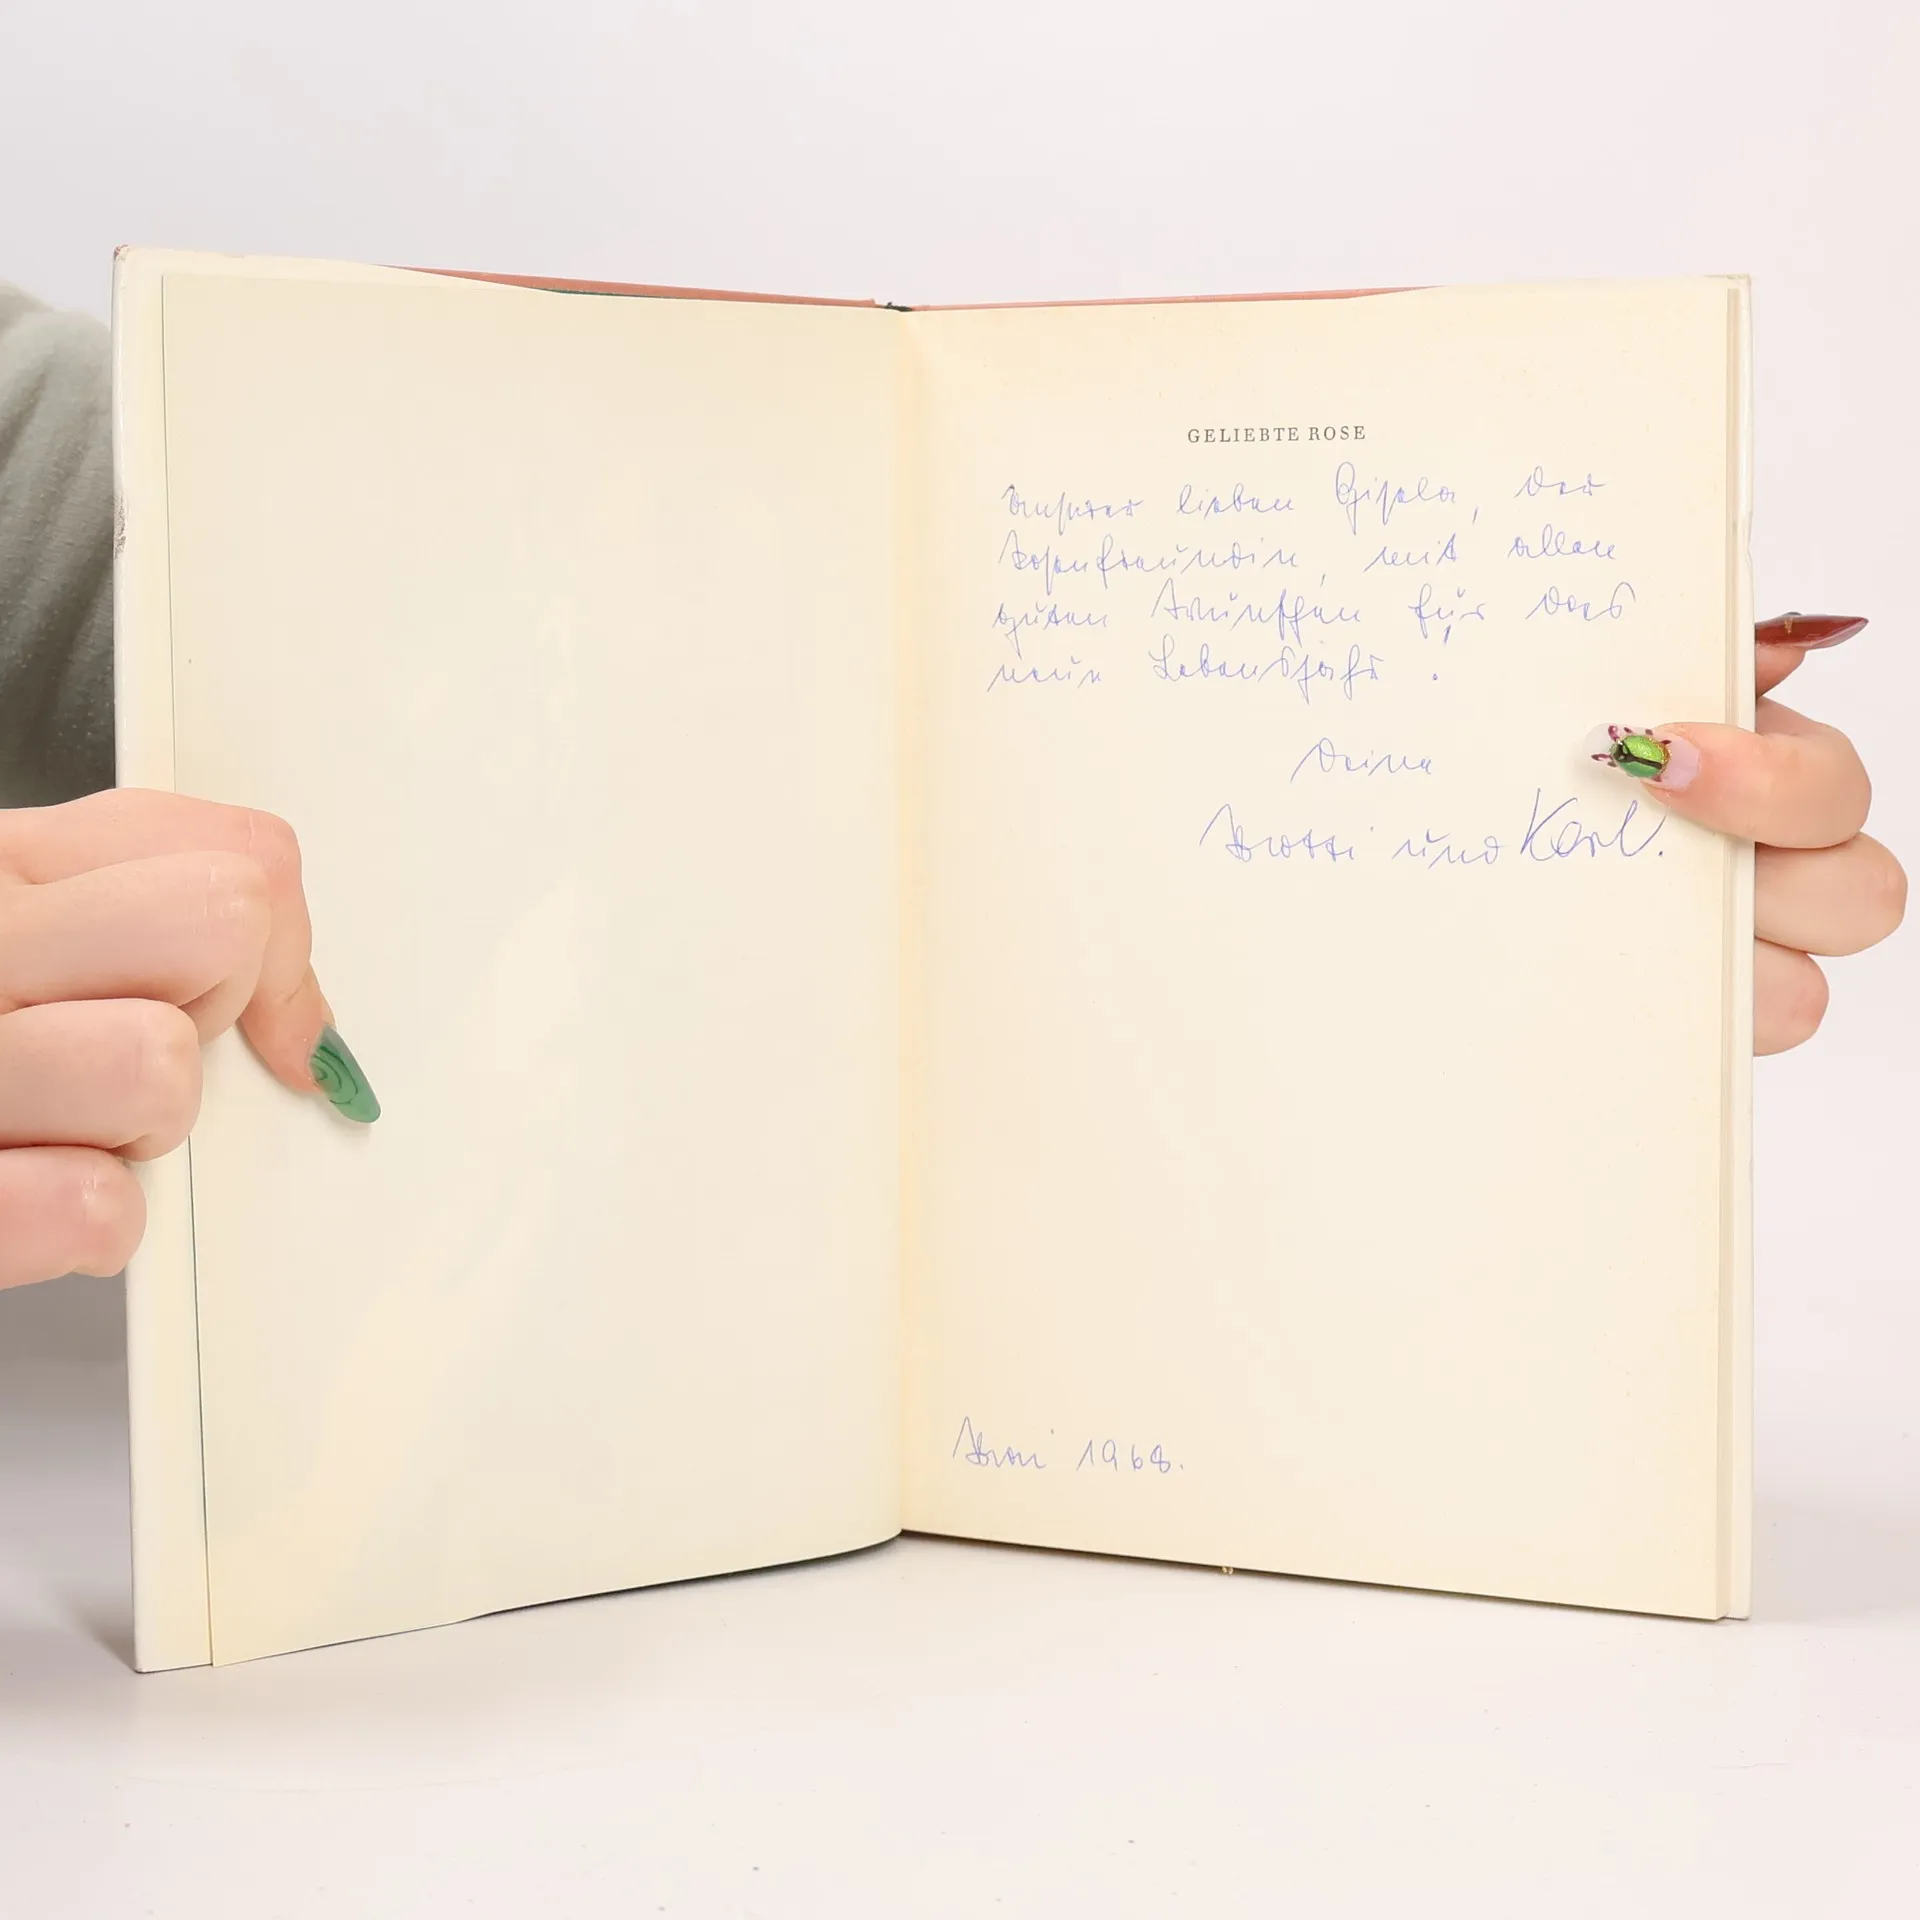 GELIEBTE ROSE
Unserer lieben Gisela, der
Rosenfreundin, mit allen
guten Wünschen für das
neue Lebensjahr!
Deine
und Karl.
1968.